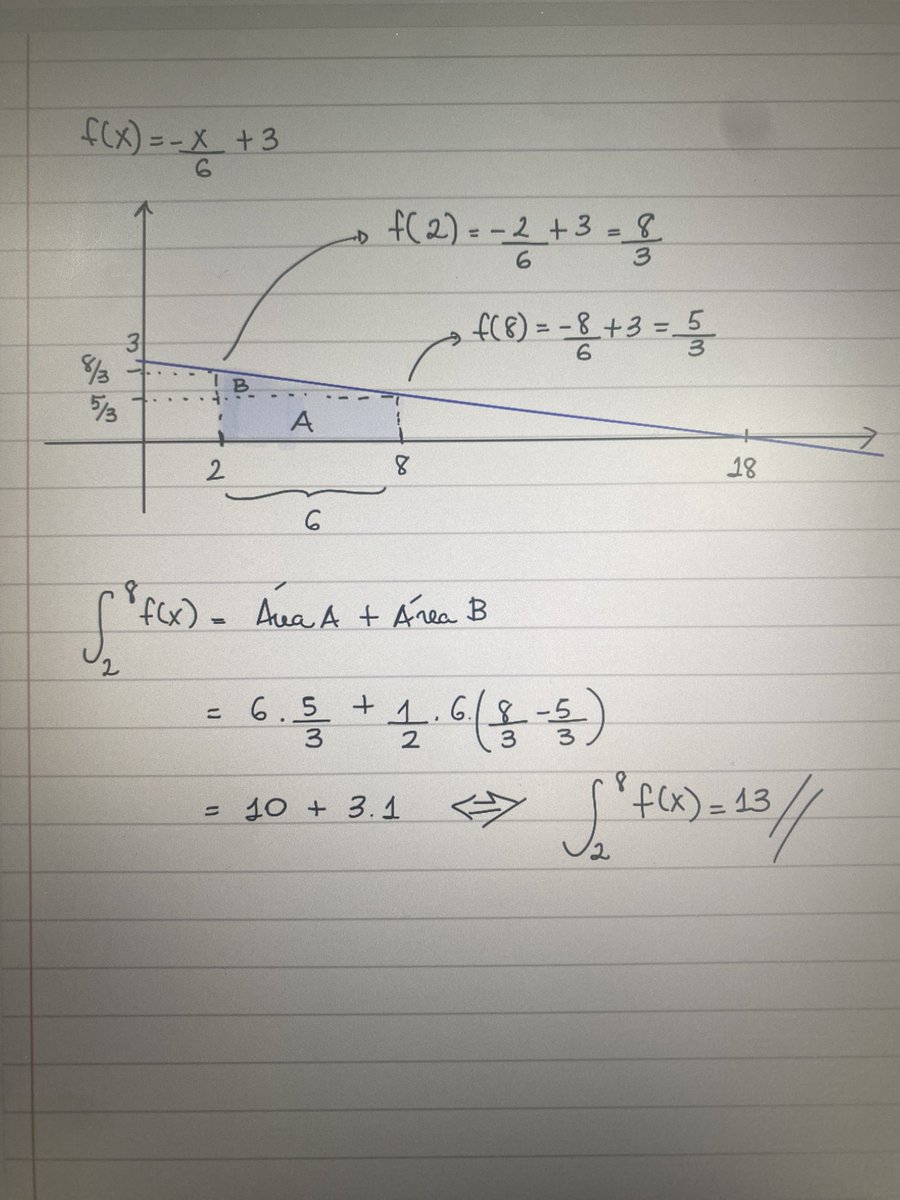 f(x) = -x/6 + 3
f(2) = -2/6 + 3 = 8/3
f(8) = -8/6 + 3 = 5/3
3
8/3
5/3
B
A
2
8
18
6
∫₂⁸ f(x) = Área A + Área B
= 6 . 5/3 + 1/2 . 6 . (8/3 - 5/3)
= 10 + 3.1 ⇔ ∫₂⁸ f(x) = 13 //